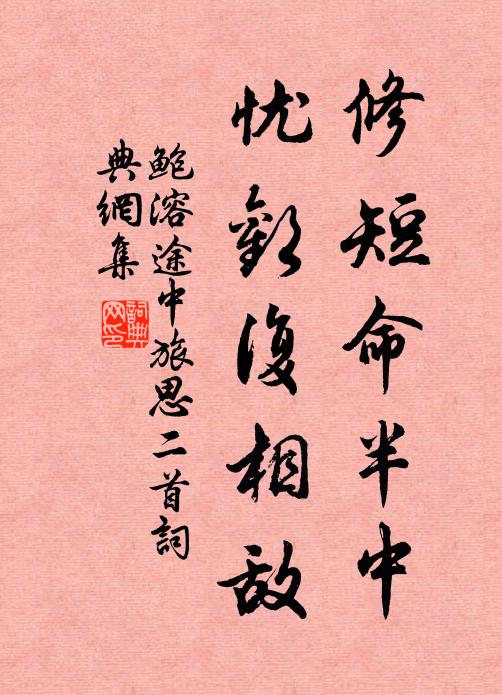 修短命半中
忧歡復相敌
鲍溶途中旅思二首詞
典網集
詞典
网印